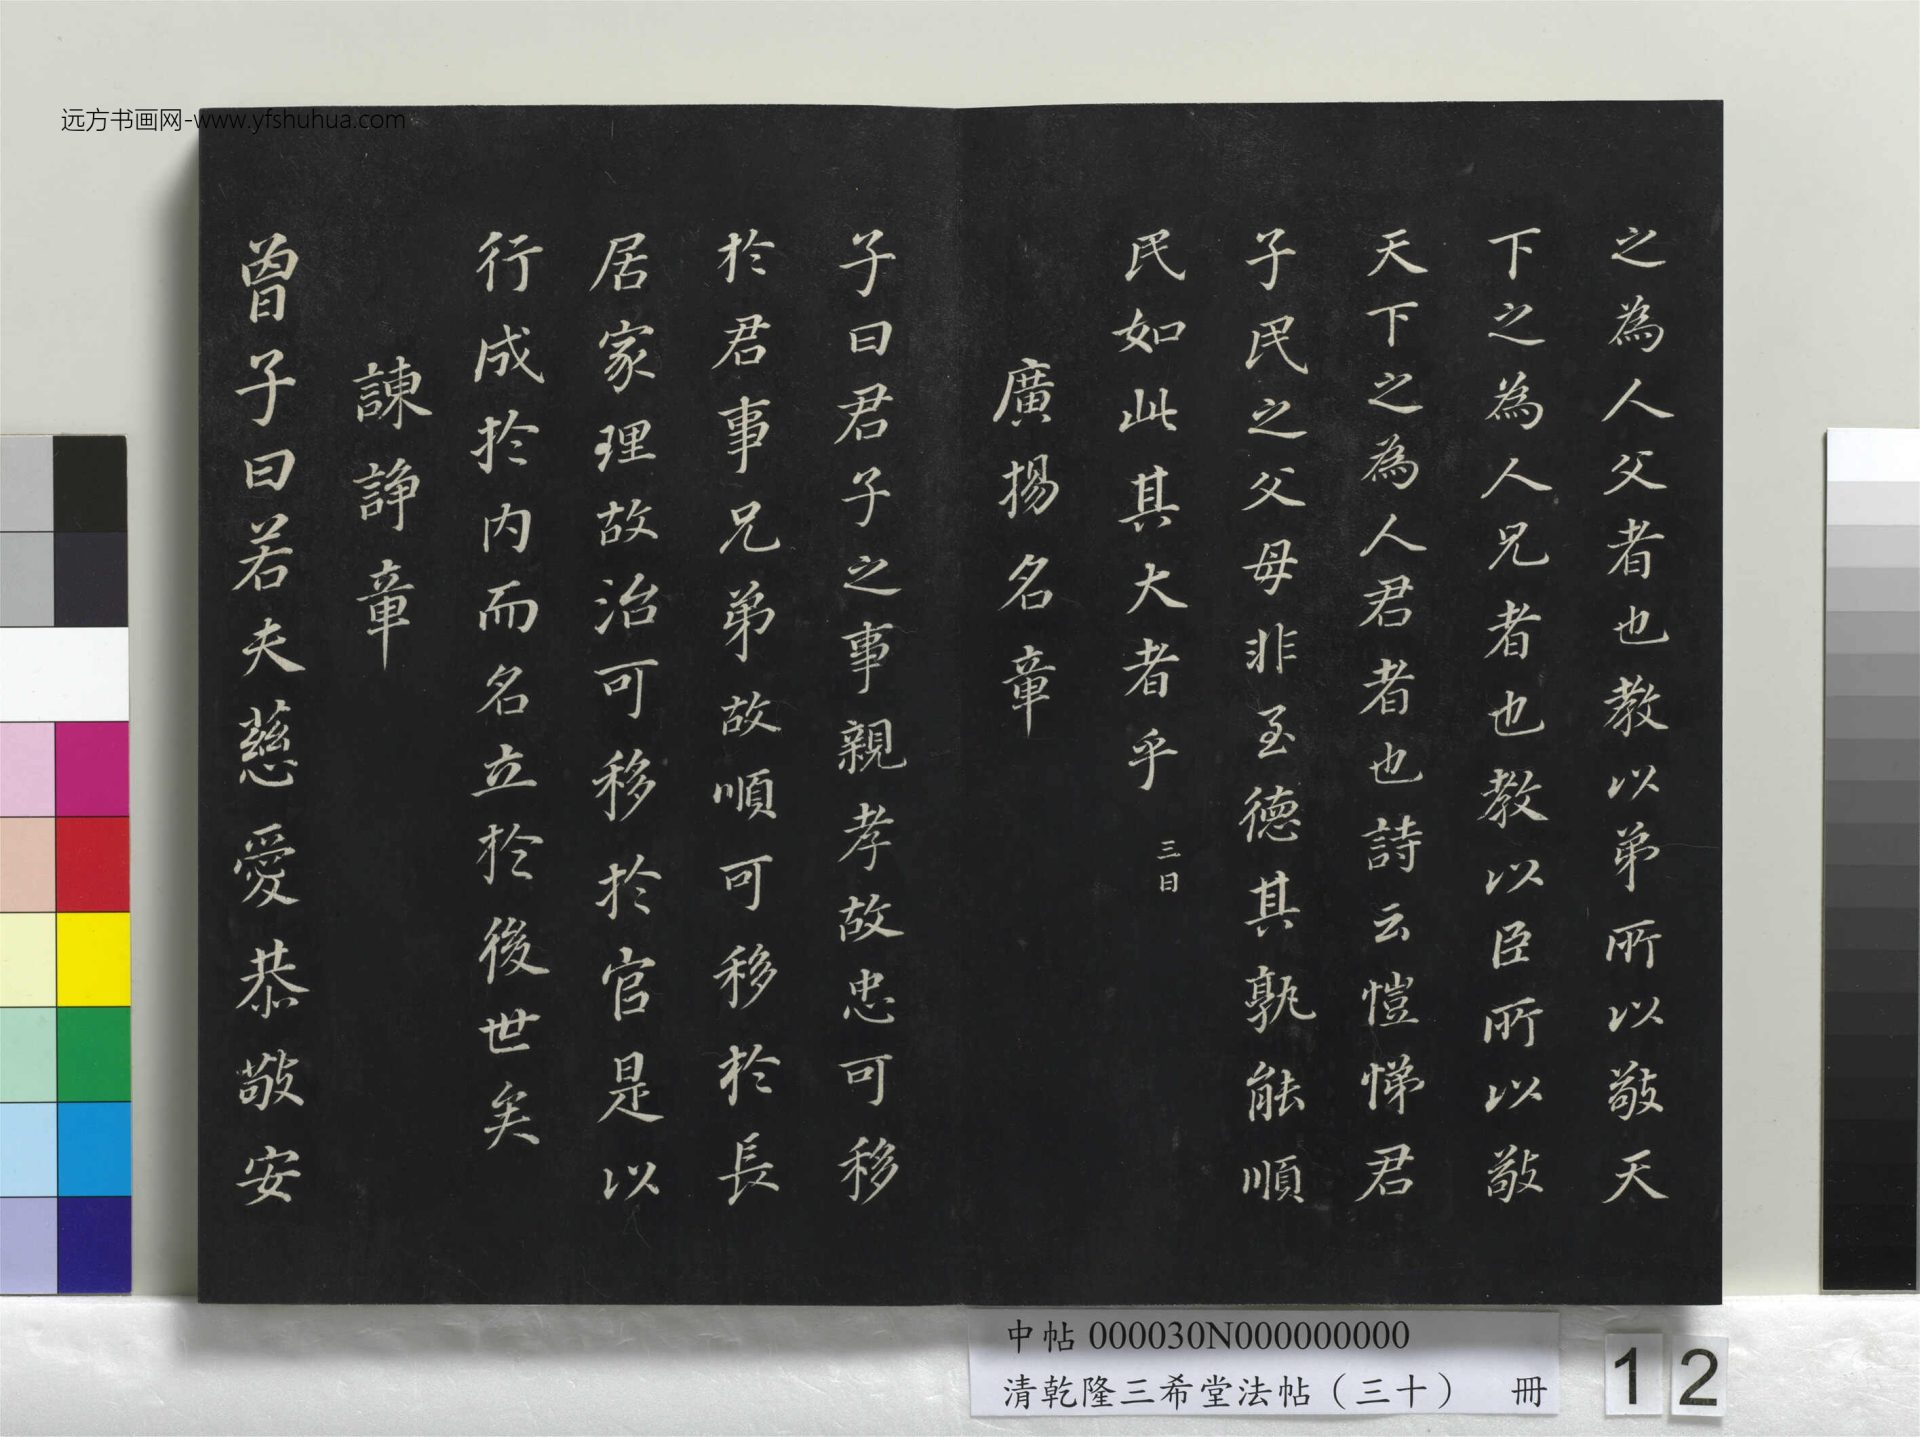 远方书画网-www.yfshuhua.com
之為人父者也教以弟所以敬天
下之為人兄者也教以臣所以敬
天下之為人君者也詩云愷悌君
子民之父母非至德其孰能順
民如此其大者乎
三日
廣揚名章
子曰君子之事親孝故忠可移
於君事兄弟故順可移於長
居家理故治可移於官是以
行成於内而名立於後世矣
諫諍章
曾子曰若夫慈愛恭敬安
中帖 000030N000000000
清乾隆三希堂法帖（三十） 冊
12